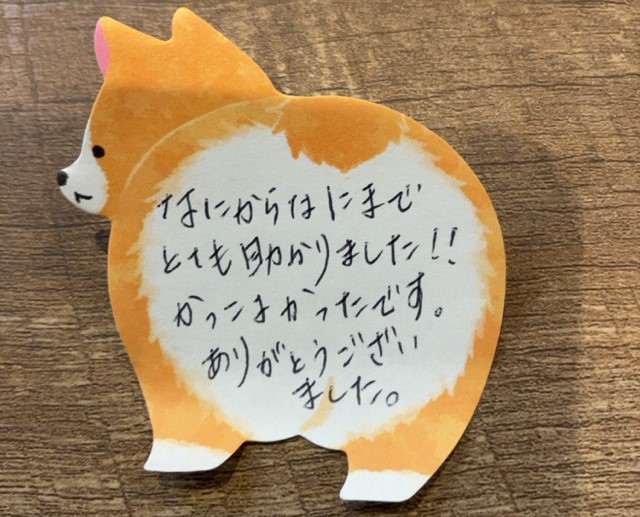 なにからなにまで
とても助かりました!!
かっこよかったです。
ありがとうござい
ました。